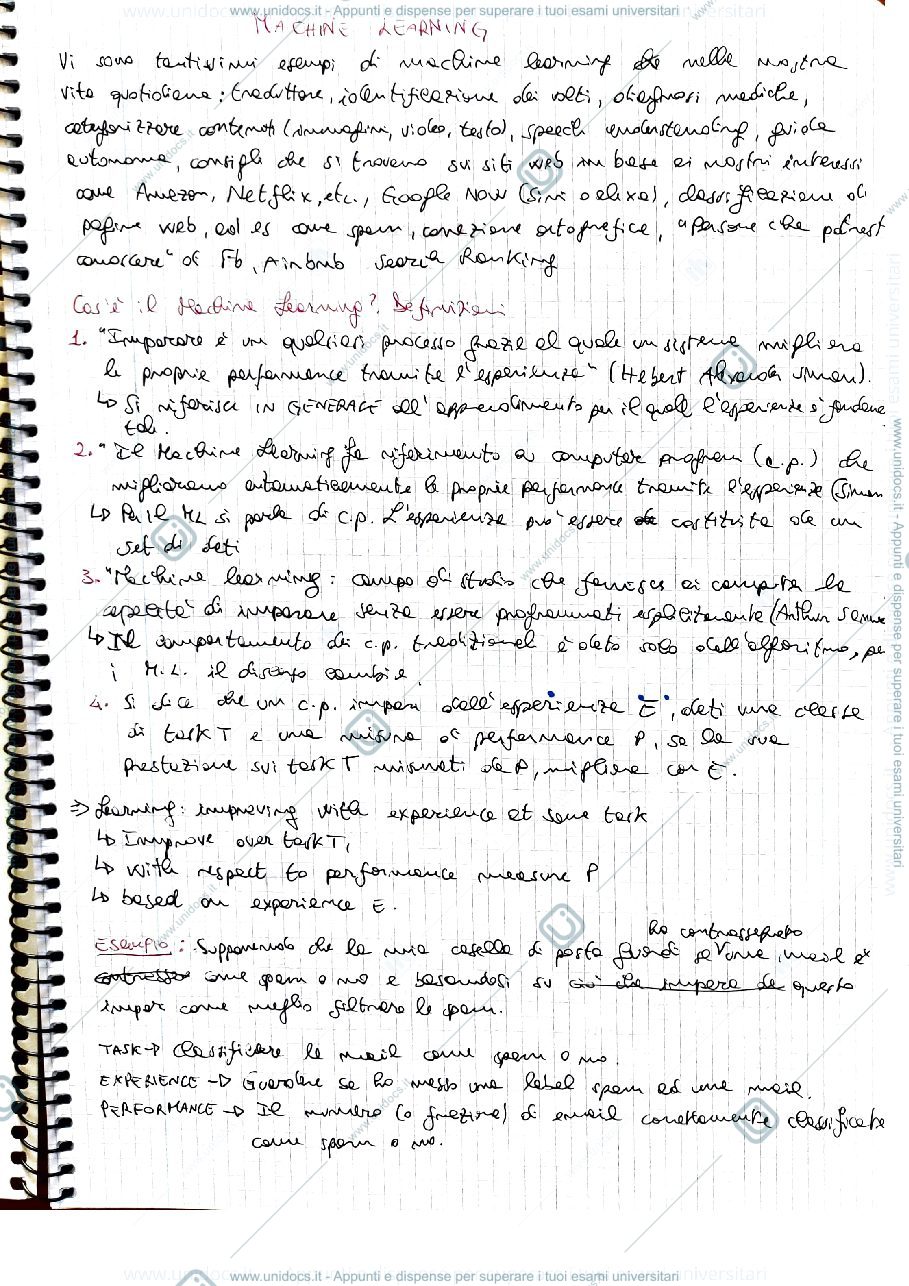 www.unidocs.it - Appunti e dispense per superare i tuoi esami universitari
MACHINE LEARNING
Vi sono tantissimi esempi di machine learning nella nostra
vita quotidiana: traduttore, identificazione dei volti, diagnosi mediche,
categorizzare contenuti (immagini, video, testo), speech understanding, guida
autonoma, consigli che si trovano sui siti web in base ai nostri interessi
come Amazon, Netflix, etc., Google Now (Siri o alexa), classificazione di
pagine web, ad es come spam, correzione ortografica, "Persone che potrest
conoscere" di Fb, Airbnb Search Ranking
Cos'è il Machine Learning? Definizioni
1. "Imparare è un qualsiasi processo grazie al quale un sistema migliora
le proprie performance tramite l'esperienza" (Hebert Simon).
↳ Si riferisce IN GENERALE all'apprendimento per il quale l'esperienza è fondame
tale.
2. "Il Machine Learning fa riferimento a computer program (c.p.) che
migliorano automaticamente le proprie performance tramite l'esperienza (Simon
↳ Per il ML si parla di c.p. L'esperienza può essere costituita da un
set di dati
3. "Machine learning: campo di studio che fornisce ai computer la
capacità di imparare senza essere programmati esplicitamente (Arthur Samue
↳ Il comportamento dei c.p. tradizionali è dato solo dall'algoritmo, pe
i M.L. il discorso cambia.
4. Si dice che un c.p. impara dall'esperienza E, dati una classe
di task T e una misura di performance P, se la sua
prestazione sui task T misurati da P, migliora con E.
⇒ Learning: improving with experience at some task
↳ Improve over task T,
↳ With respect to performance measure P
↳ based on experience E.
ho contrassegnato
Esempio: Supponendo che la mia casella di posta guardi se una mail
come spam o no e basandosi su ciò che impara da questo
impara come meglio filtrare le spam.
TASK → Classificare le mail come spam o no.
EXPERIENCE → Guardare se ho messo una label spam ad una mail.
PERFORMANCE → Il numero (o frazione) di email correttamente classificate
come spam o no.
www.unidocs.it - Appunti e dispense per superare i tuoi esami universitari